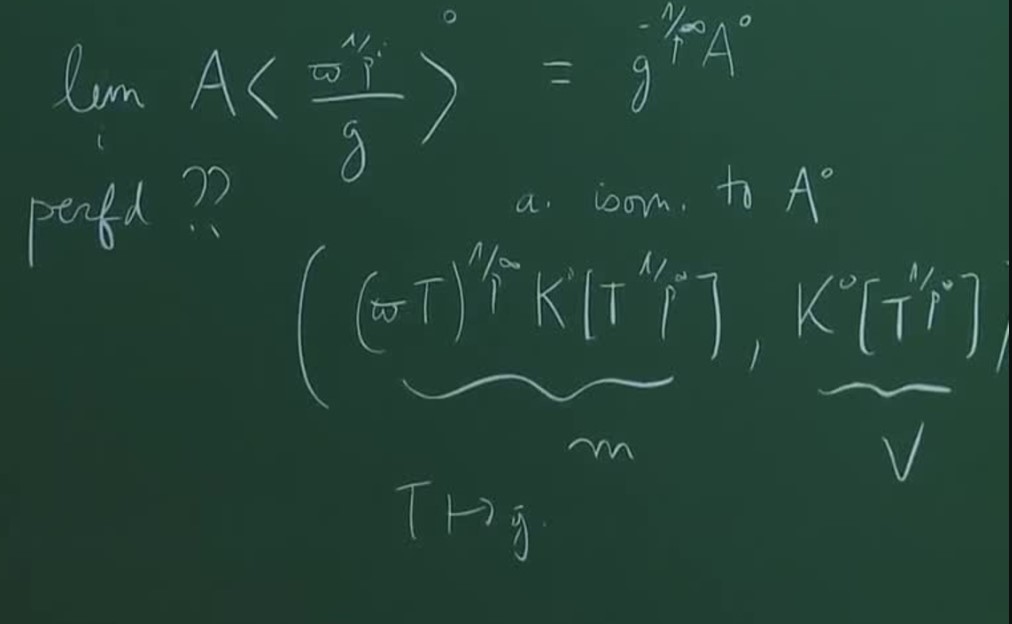 lim_i A⟨ϖ^{1/p^i}/g⟩° = g^{-1/p^∞}A°
perfd ??
a. isom. to A°
((ϖT)^{1/p^∞} K°[T^{1/p^∞}], K°[T^{1/p^∞}])
m V
T ↦ g.